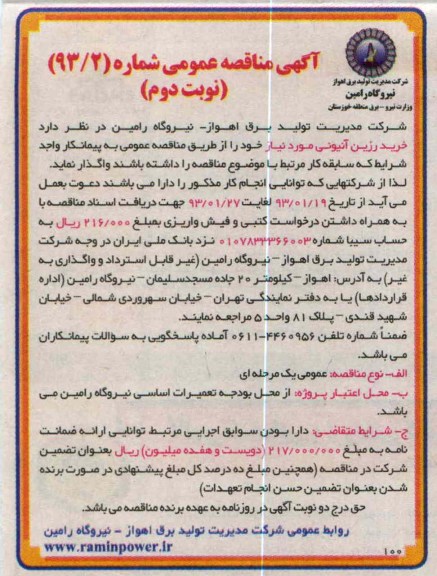 آگهی مناقصه عمومی شماره (۹۳/۲)
(نوبت دوم)
شرکت مدیریت تولید برق اهواز
نیروگاه رامین
وزارت نیرو - برق منطقه خوزستان
شرکت مدیریت تولید برق اهواز- نیروگاه رامین در نظر دارد
خرید رزین آنیونی مورد نیاز خود را از طریق مناقصه عمومی به پیمانکار واجد
شرایط که سابقه کار مرتبط با موضوع مناقصه را داشته باشند واگذار نماید.
لذا از شرکتهایی که توانایی انجام کار مذکور را دارا می باشند دعوت بعمل
می آید از تاریخ ۹۳/۰۱/۱۹ لغایت ۹۳/۰۱/۲۷ جهت دریافت اسناد مناقصه با
به همراه داشتن درخواست کتبی و فیش واریزی بمبلغ ۲۱۶/۰۰۰ ریال به
حساب سیبا شماره ۰۱۰۷۸۳۳۶۶۰۰۳ نزد بانک ملی ایران در وجه شرکت
مدیریت تولید برق اهواز – نیروگاه رامین (غیر قابل استرداد و واگذاری به
غیر) به آدرس: اهواز – کیلومتر ۲۰ جاده مسجدسلیمان – نیروگاه رامین (اداره
قراردادها) یا به دفتر نمایندگی تهران – خیابان سهروردی شمالی – خیابان
شهید قندی – پلاک ۸۱ واحد ۵ مراجعه نمایند.
ضمناً شماره تلفن ۴۴۶۰۹۵۶-۰۶۱۱ آماده پاسخگویی به سؤالات پیمانکاران
می باشد.
الف- نوع مناقصه: عمومی یک مرحله ای
ب- محل اعتبار پروژه: از محل بودجه تعمیرات اساسی نیروگاه رامین می
باشد.
ج- شرایط متقاضی: دارا بودن سوابق اجرایی مرتبط توانایی ارائه ضمانت
نامه به مبلغ ۲۱۷/۰۰۰/۰۰۰ (دویست و هفده میلیون) ریال بعنوان تضمین
شرکت در مناقصه (همچنین مبلغ ده درصد کل مبلغ پیشنهادی در صورت برنده
شدن بعنوان تضمین حسن انجام تعهدات)
حق درج دو نوبت آگهی در روزنامه به عهده برنده مناقصه می باشد.
روابط عمومی شرکت مدیریت تولید برق اهواز – نیروگاه رامین
www.raminpower.ir
۱۰۰